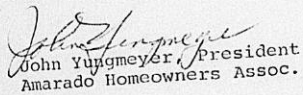 John Yungmeyer
John Yungmeyer, President
Amarado Homeowners Assoc.